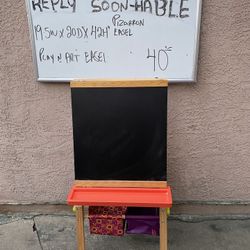 REPLY SOON-HABLE
PIZARRON
19.5W X 20D X 42H EASEL
PLAY N ART EASEL 40